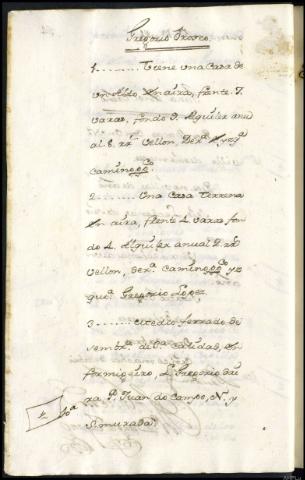 Gregorio Franco
1......... Tiene una Casa de
un Alto en aira, frente 7.
varas, fondo 9. Alquiler anu
al 8. rrˢ vellon, Derᵃ, y yzqᵃ
camino
2......... Una Casa Terrena
en aira, frente 4. varas, fon
do 4. Alquiler anual 2. rrˢ
vellon, derᵃ. camino y yz
quᵃ. Gregorio Lopez,
3......... medio ferrado de
sembrᵃ de 1ᵃ calidad, en
formigueiro, L. Gregorio
P. Juan do Campo, N. y
S. murada